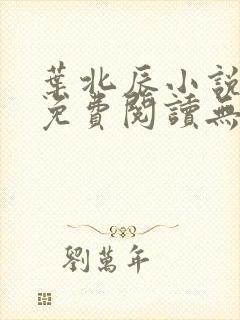 葉北辰小說
免費閱讀無
劉萬年